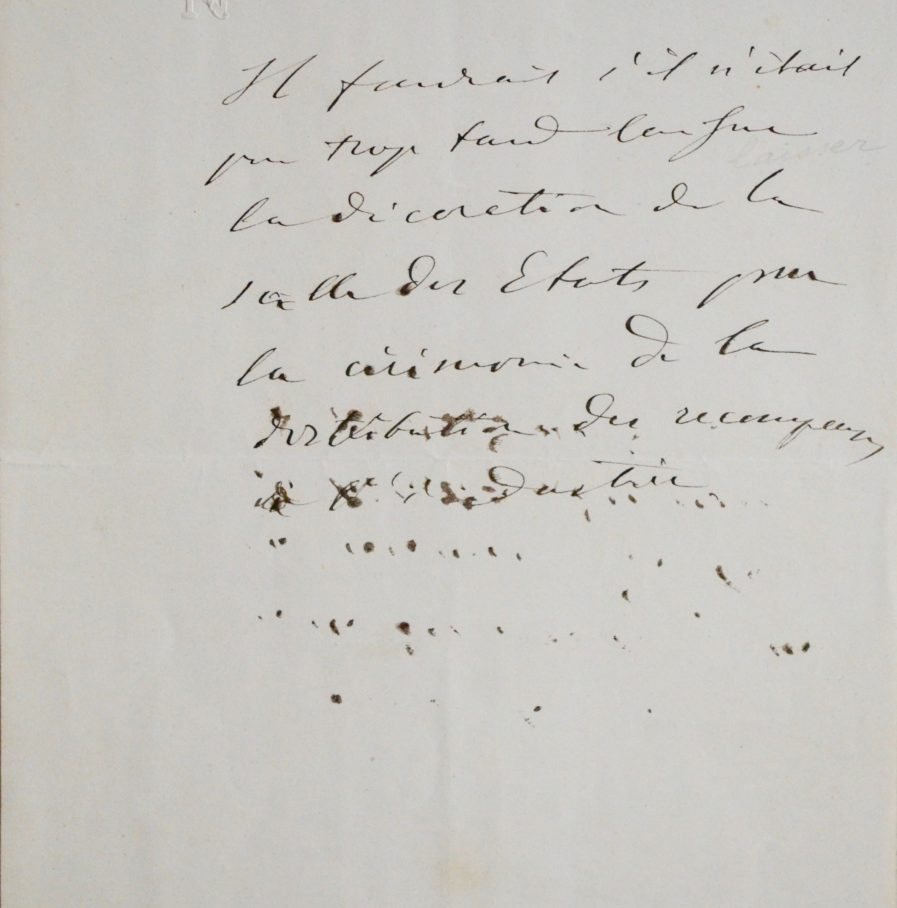 Il faudrait s'il n'était
pas trop tard laisser
laisser
la décoration de la
salle des Etats pour
la cérémonie de la
distribution des recompenses
à l'industrie